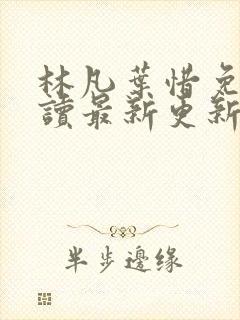 林凡葉惜免
讀最新更新
半步邊緣